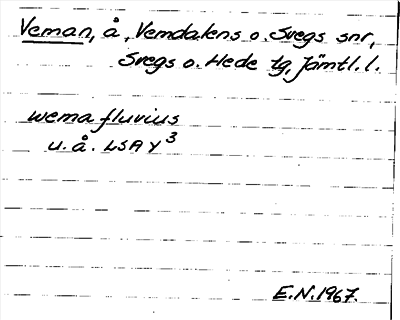 Veman, å, Vemdalens o. Svegs snr,
Svegs o. Hede tg, Jämtl. l.
wema fluvius
u. å. LSA Y 3
E.N. 1967.